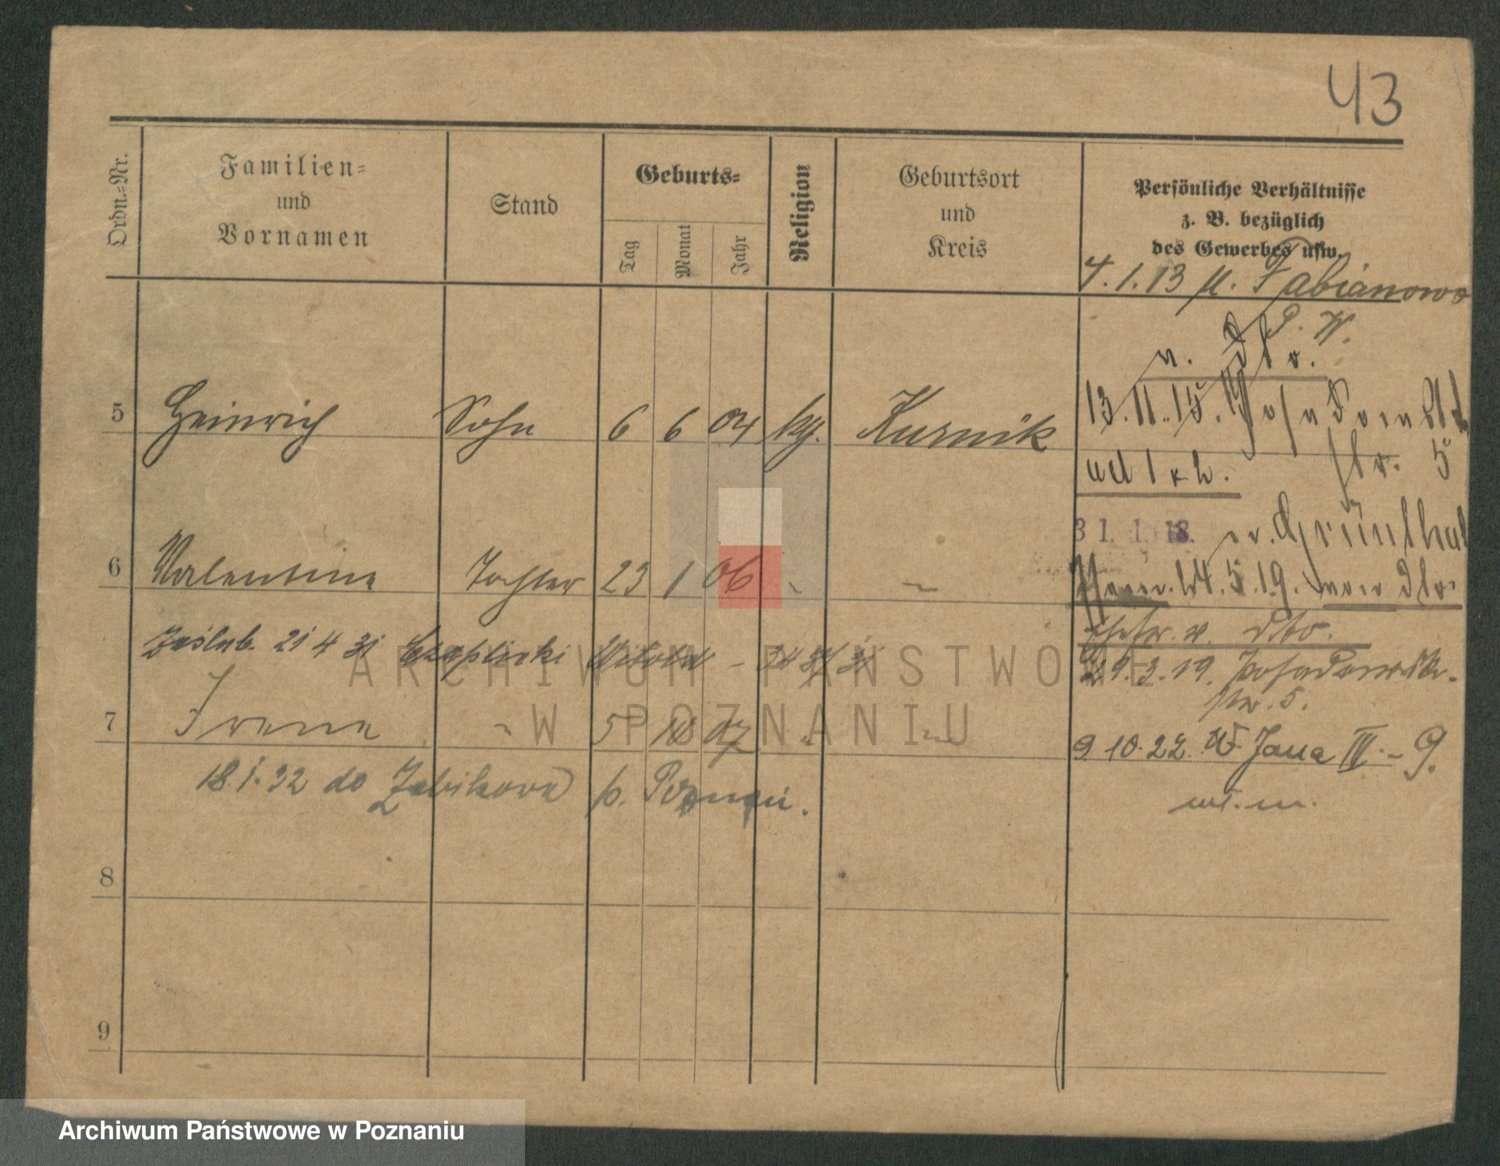 43
Ordn.-Nr.
Familien-
und
Vornamen
Stand
Geburts-
Tag
Monat
Jahr
Religion
Geburtsort
und
Kreis
Persönliche Verhältnisse
z. B. bezüglich
des Gewerbes usw.
4.1.13 Fabianowo
P. W.
v. dto.
5 Heinrich Sohn 6 6 04 kg. Kurnik
13.11.15.
str. 5
31.1.18. Grünthal
6 Valentine Tochter 23 1 06 〃 〃
14.5.19. von dto.
v. dto.
Zaślub. 21 4 31 Czaplicki Witold -
29.3.19. Posadowski-
str. 5.
7 Irena 〃 5 10 07 〃 〃
9.10.22. W. Jana III. - 9.
18.1.32 do Żabikova p. Poznań.
wł. m.
8
9
ARCHIWUM PAŃSTWOWE
W POZNANIU
Archiwum Państwowe w Poznaniu